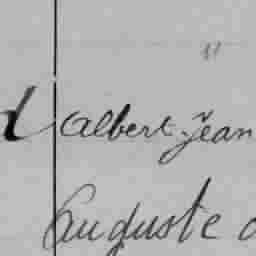 albert Jean
auguste